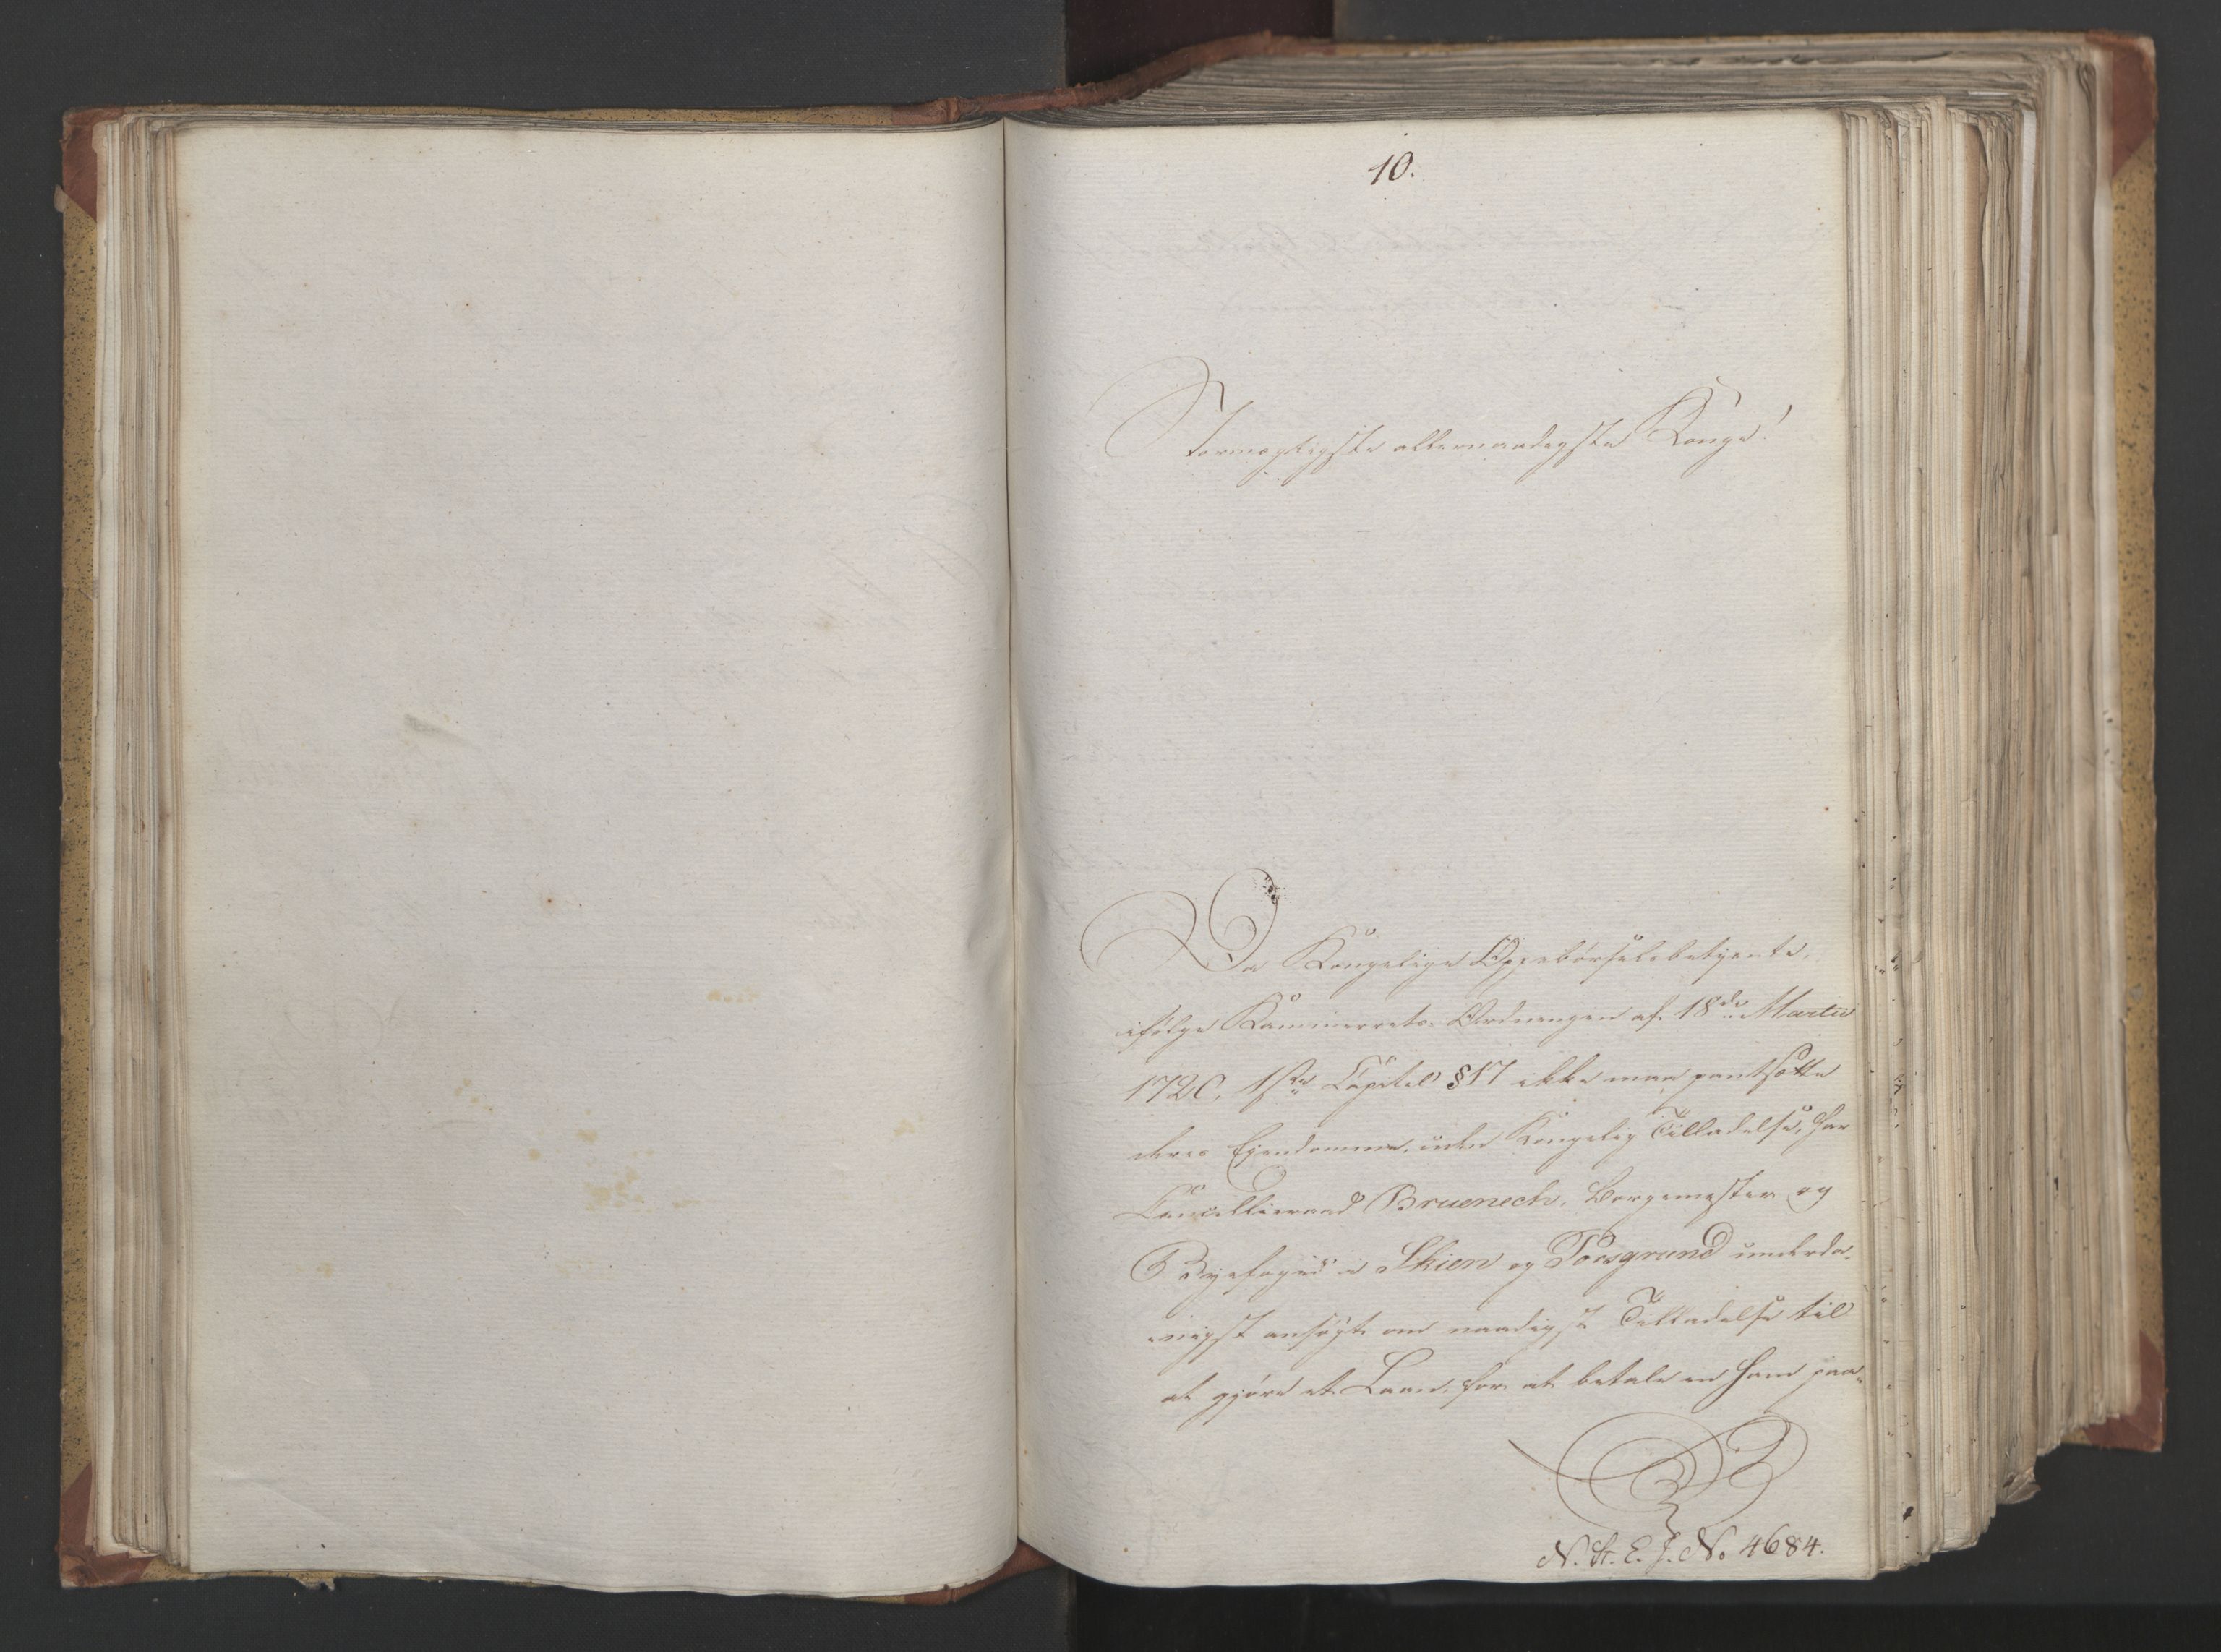 10.
Stormægtigste allernaadigste Konge!
Da Kongelige Oppebørselsbetjente,
ifølge Kammerrets-Ordningen af 18de Martii
1720, 1ste Capitel §17 ikke maa pantsætte
deres Ejendomme, uden Kongelig Tilladelse, har
Cancellieraad Bruenech, Borgemester og
Byefoged i Skien og Porsgrund underda-
nigst ansøgt om naadigst Tilladelse til
at gjøre et Laan, for at betale en ham paa-
N. St. E. J. No 4684.